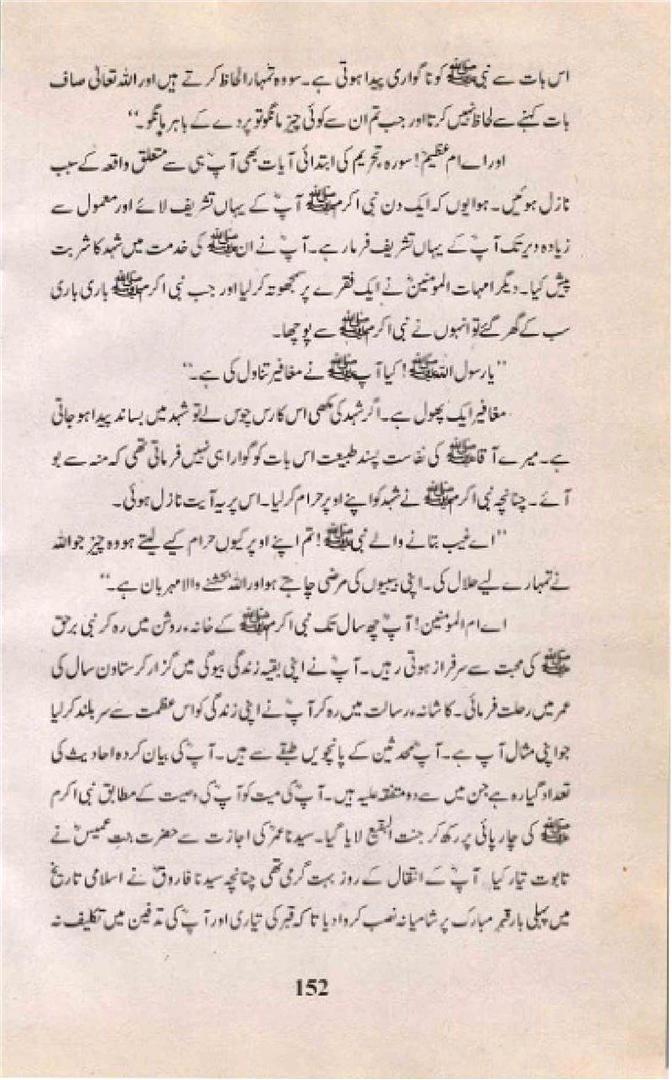 اس بات سے نبی ﷺ کو ناگواری پیدا ہوتی ہے۔ سو وہ تمہارا لحاظ کرتے ہیں اور اللہ تعالیٰ صاف
بات کہنے سے لحاظ نہیں کرتا اور جب تم ان سے کوئی چیز مانگو تو پردے کے باہر مانگو۔"
اور اے ام عظیمؓ! سورہ تحریم کی ابتدائی آیات بھی آپؓ ہی سے متعلق واقعہ کے سبب
نازل ہوئیں۔ ہوا یوں کہ ایک دن نبی اکرم ﷺ آپؓ کے یہاں تشریف لائے اور معمول سے
زیادہ دیر تک آپؓ کے یہاں تشریف فرما رہے۔ آپؓ نے ان ﷺ کی خدمت میں شہد کا شربت
پیش کیا۔ دیگر امہات المومنینؓ نے ایک فقرے پر سمجھوتہ کر لیا اور جب نبی اکرم ﷺ باری باری
سب کے گھر گئے تو انہوں نے نبی اکرم ﷺ سے پوچھا۔
"یا رسول اللہ ﷺ! کیا آپ ﷺ نے مغافیر تناول کی ہے۔"
مغافیر ایک پھول ہے۔ اگر شہد کی مکھی اس کا رس چوس لے تو شہد میں بساند پیدا ہو جاتی
ہے۔ میرے آقا ﷺ کی نفاست پسند طبیعت اس بات کو گوارا ہی نہیں فرماتی تھی کہ منہ سے بو
آئے۔ چنانچہ نبی اکرم ﷺ نے شہد کو اپنے اوپر حرام کر لیا۔ اس پر یہ آیت نازل ہوئی۔
"اے غیب بتانے والے نبی ﷺ! تم اپنے اوپر کیوں حرام کیے لیتے ہو وہ چیز جو اللہ
نے تمہارے لیے حلال کی۔ اپنی بیبیوں کی مرضی چاہتے ہو اور اللہ بخشنے والا مہربان ہے۔"
اے ام المومنین! آپؓ چھ سال تک نبی اکرم ﷺ کے خانہء روشن میں رہ کر نبی برحق
ﷺ کی محبت سے سرفراز ہوتی رہیں۔ آپؓ نے اپنی بقیہ زندگی بیوگی میں گزار کر ستاون سال کی
عمر میں رحلت فرمائی۔ کاشانہء رسالت میں رہ کر آپؓ نے اپنی زندگی کو اس عظمت سے سربلند کر لیا
جو اپنی مثال آپ ہے۔ آپؓ محدثین کے پانچویں طبقے سے ہیں۔ آپؓ کی بیان کردہ احادیث کی
تعداد گیارہ ہے جن میں سے دو متفق علیہ ہیں۔ آپؓ کی میت کو آپؓ کی وصیت کے مطابق نبی اکرم
ﷺ کی چارپائی پر رکھ کر جنت البقیع لایا گیا۔ سیدنا عمرؓ کی اجازت سے حضرت بنت عمیسؓ نے
تابوت تیار کیا آپؓ کے انتقال کے روز بہت گرمی تھی چنانچہ سیدنا فاروقؓ نے اسلامی تاریخ
میں پہلی بار قبر مبارک پر شامیانہ نصب کروا دیا تا کہ قبر کی تیاری اور آپؓ کی تدفین میں تکلیف نہ
152